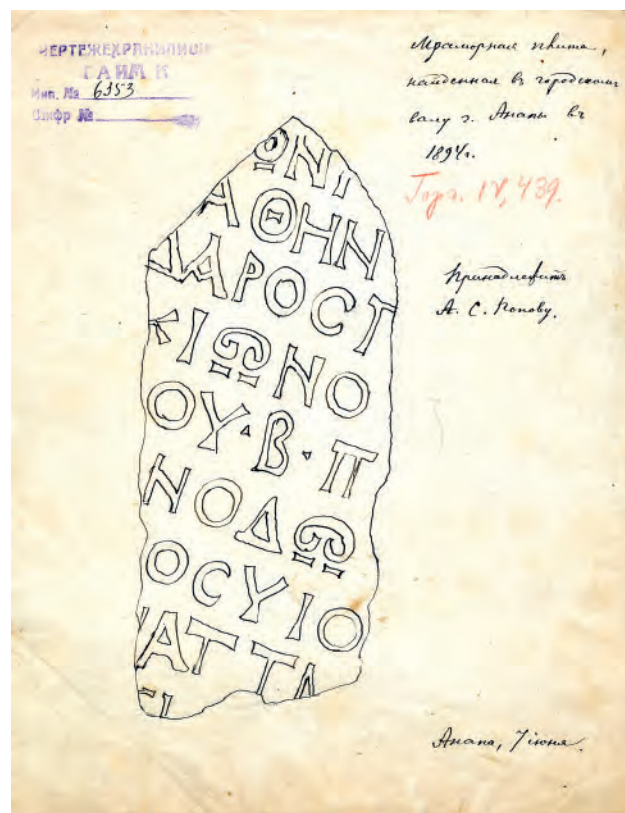 ЧЕРТЕЖЕХРАНИЛИЩЕ
ГАИМК
Инв. № 6353
Шифр №
Мраморная плита,
найденная въ городскомъ
валу г. Анапы въ
1894 г.
Горг. IV, 439.
Принадлежитъ
А. С. Попову.
ΩΝΙ
ΑΘΗΝ
ΑΡΟСΤ
ΙΩΝΟ
ΟΥ·Β·Π
ΝΟΔΩ
ΟСΥΙΟ
ΑΤΤΑ
Анапа, 7 іюня.